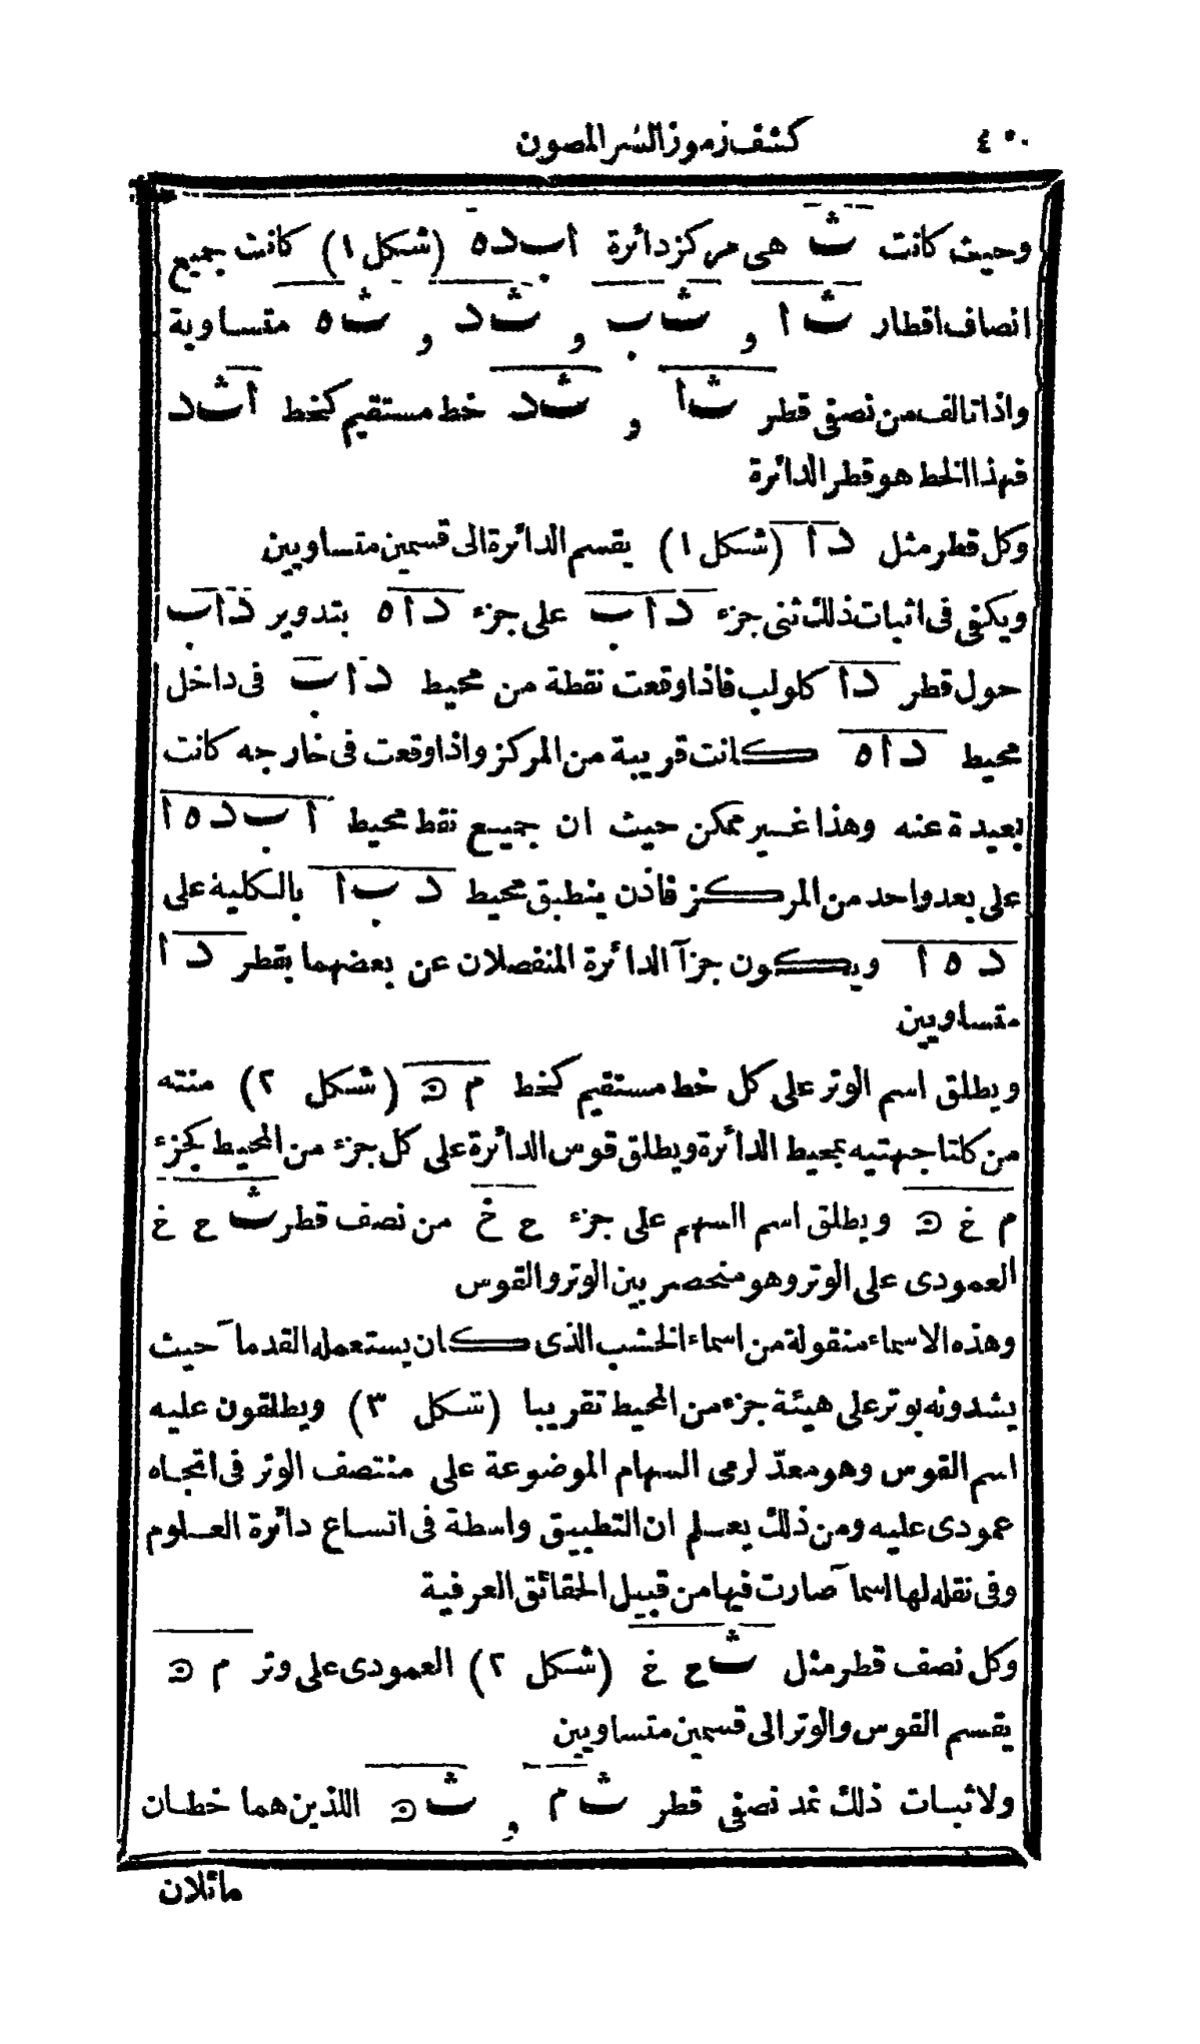 ٤٥٠ كشف رموز السر المصون
وحيث كانت ث هى مركز دائرة ابده (شكل ١) كانت جميع
انصاف اقطار ثا و ثب و ثد و ثه متساوية
واذا تالف من نصفى قطر ثا و ثد خط مستقيم كخط اثد
فهذا الخط هو قطر الدائرة
وكل قطر مثل دا (شكل ١) يقسم الدائرة الى قسمين متساويين
ويكفى فى اثبات ذلك ثنى جزء داب على جزء داه بتدوير داب
حول قطر دا كلولب فاذا وقعت نقطة من محيط داب فى داخل
محيط داه كانت قريبة من المركز واذا وقعت فى خارجه كانت
بعيدة عنه وهذا غير ممكن حيث ان جميع نقط محيط ابده ا
على بعد واحد من المركز فاذن ينطبق محيط دبا بالكلية على
ده ا ويكون جزآ الدائرة المنفصلان عن بعضهما بقطر دا
متساويين
ويطلق اسم الوتر على كل خط مستقيم كخط م ﻭ (شكل ٢) منته
من كلتا جهتيه بمحيط الدائرة ويطلق قوس الدائرة على كل جزء من المحيط كجزء
م غ ويطلق اسم السهم على جزء ح خ من نصف قطر ث ح غ
العمودى على الوتر وهو منحصر بين الوتر والقوس
وهذه الاسماء منقولة من اسماء الخشب الذى كان يستعمله القدمآ حيث
يشدونه بوتر على هيئة جزء من المحيط تقريبا (شكل ٣) ويطلقون عليه
اسم القوس وهو معدّ لرمى السهام الموضوعة على منتصف الوتر فى اتجاه
عمودى عليه ومن ذلك يعلم ان التطبيق واسطة فى اتساع دائرة العلوم
وفى نقله لها اسمآ صارت فيها من قبيل الحقائق العرفية
وكل نصف قطر مثل ث ح غ (شكل ٢) العمودى على وتر م
يقسم القوس والوتر الى قسمين متساويين
ولاثبات ذلك نمد نصفى قطر ث م و ث اللذين هما خطان
مائلان